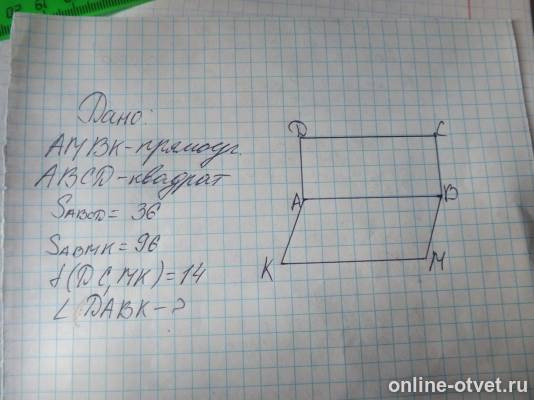 Дано:
АМВК-прямоуг.
ABCD-квадрат
SABCD = 36
SABMK = 96
(DC, MK) = 14
∠ DABK - ?
D C
A B
K M
online-otvet.ru